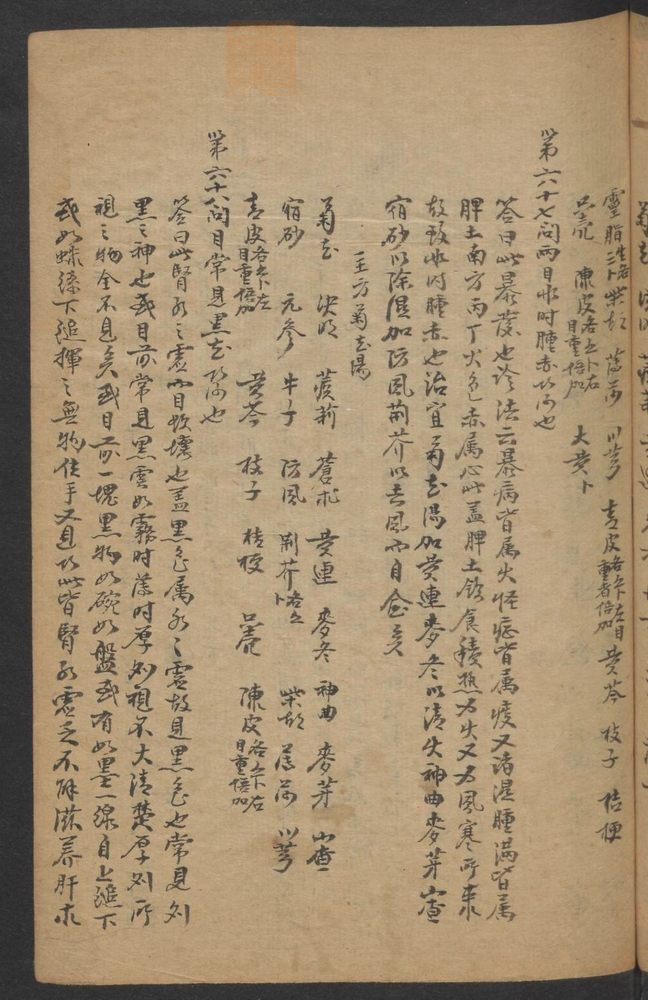 靈脂 柴胡 薄荷 川芎 青皮 黄芩 枝子 桔梗
只壳 陳皮各五卜右目重倍加 大黄卜
第六十七問两目水时腫赤巧何也
答曰此暴發也診法云暴病皆属火怪症皆属痰又諸湿腫满皆属
脾土南方丙丁火色赤属心此盖脾土飲食積热为火又为风寒所束
故致水时腫赤也治宜菊花湯加黄連麥冬以清火神曲麥芽山查
宿砂以除湿加防风荆芥以去风而目愈矣
主方菊花湯
菊花 决明 蒺莉 蒼朮 黄連 麥冬 神曲 麥芽 山查
宿砂 元参 牛子 防风 荆芥各五卜 柴胡 薄荷 川芎
青皮各五卜左目重倍加 黄芩 枝子 桔梗 只壳 陳皮各五卜右目重倍加
第六十八問目常見黑花巧何也
答曰此腎水之虚而目欲壞也盖黑色属水水虚故見黑色也常見则
黑之神也或目前常見黑雲如霧时薄时厚则視不大清楚厚则所
視之物全不見矣或目前一塊黑物如碗如盤或有如墨一線自上縋下
或如蛛絲下縋揮之無物住手又見巧此皆腎水虚乏不能滋养肝木